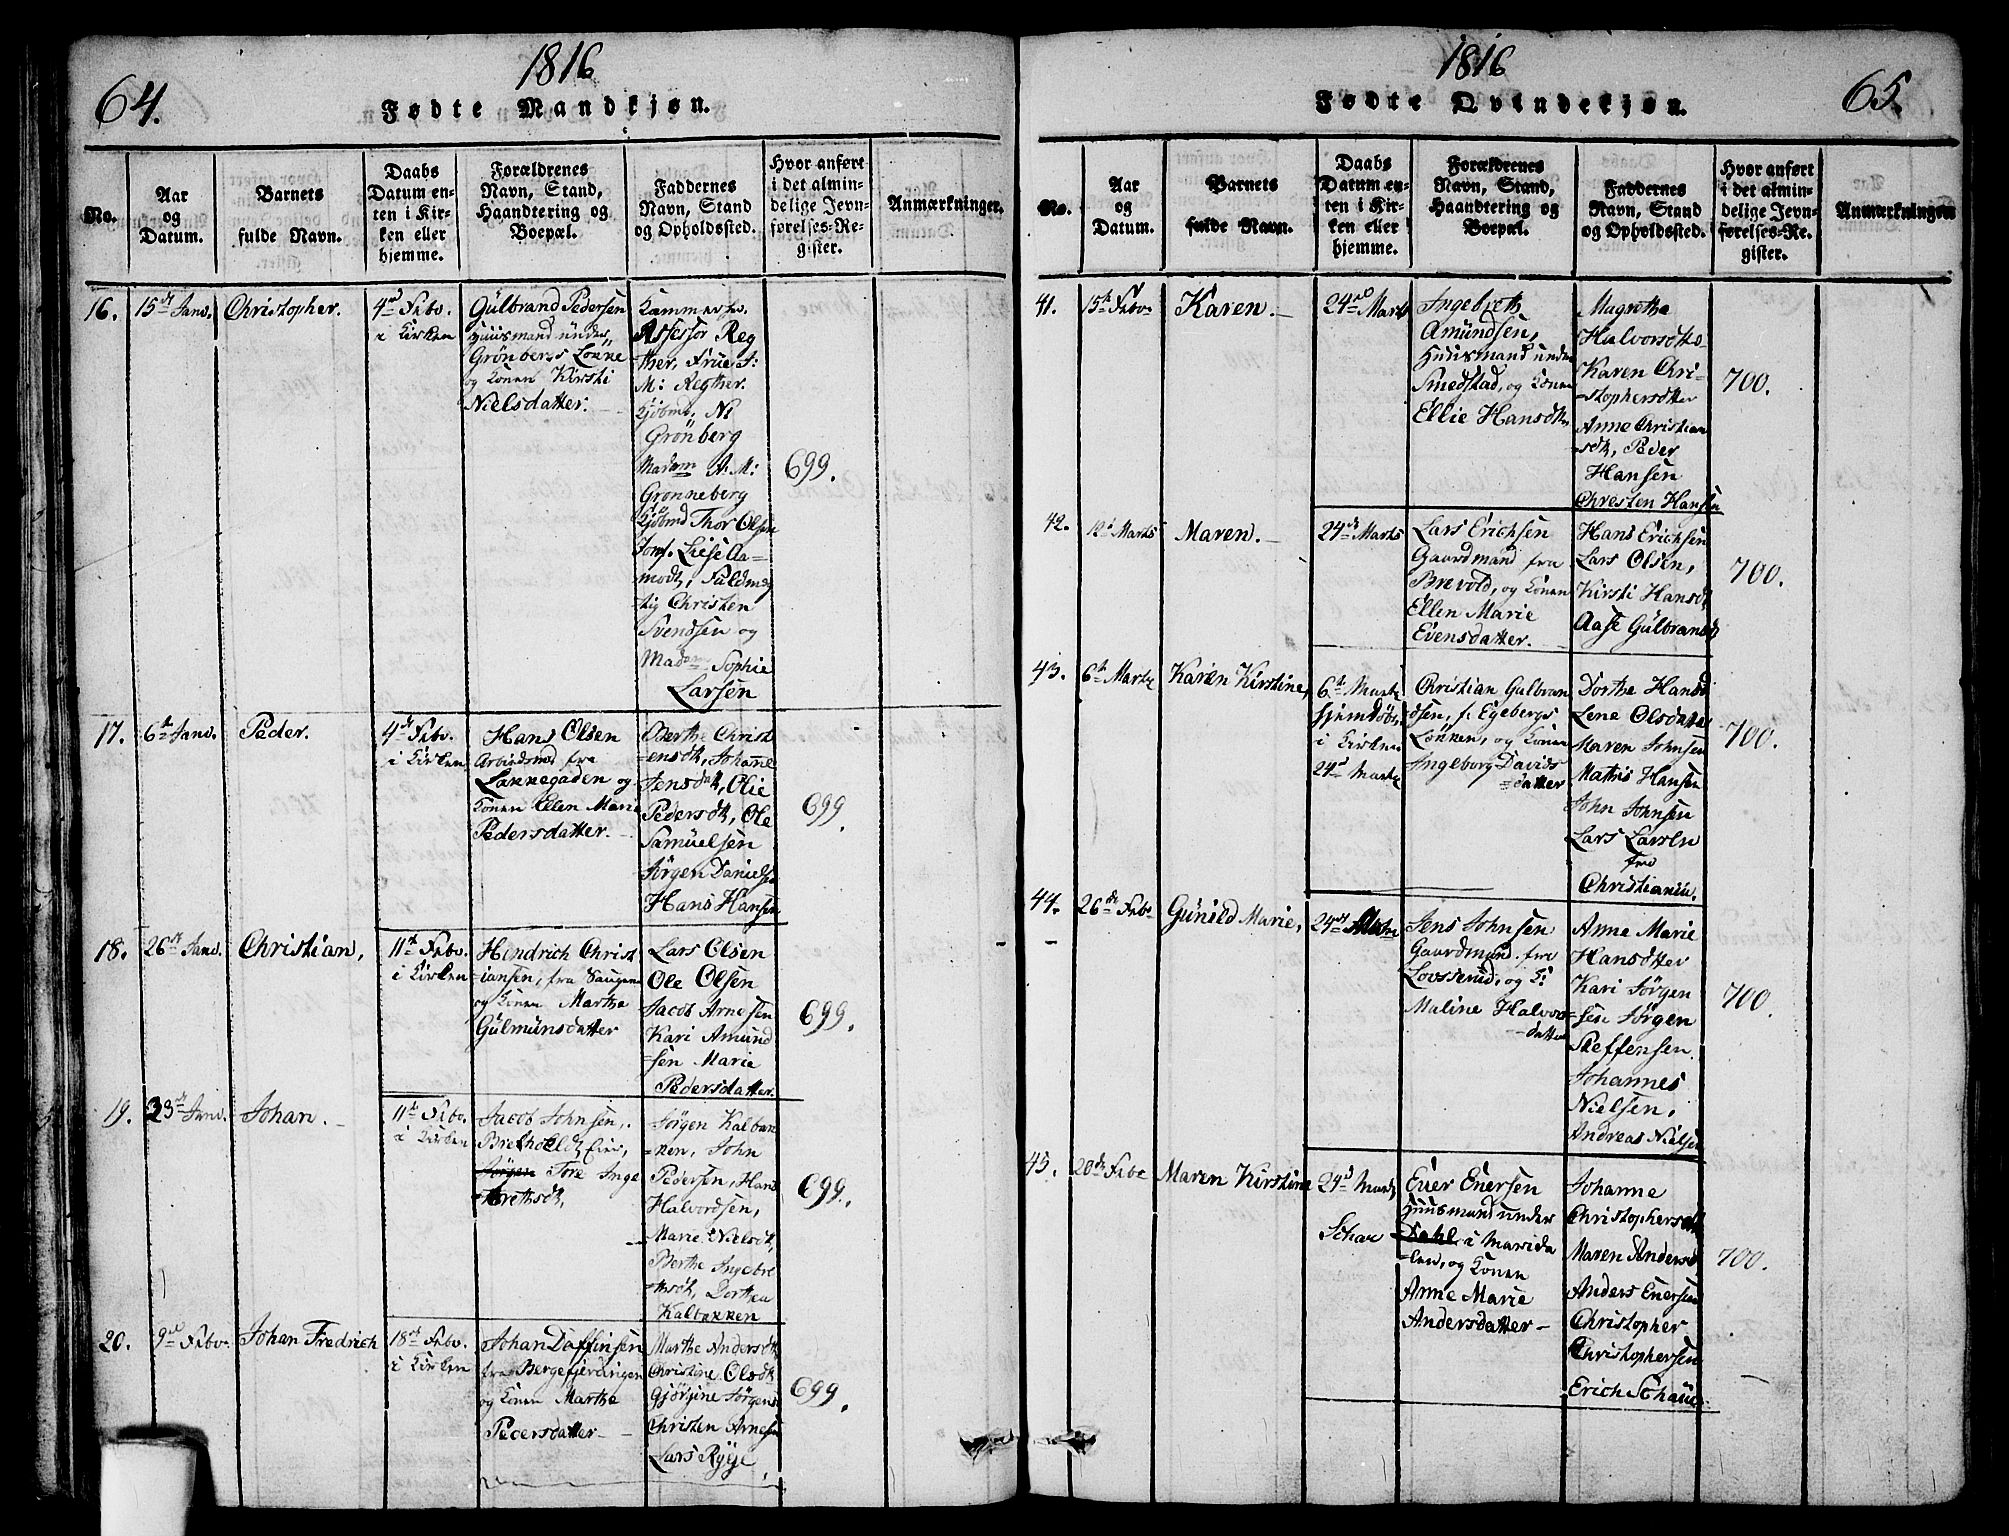 64.
1816
Fødte Mandkjøn.
No.
Aar
og
Datum.
Barnets
fulde Navn.
Daabs
Datum en-
ten i Kir-
ken eller
hjemme.
Forældrenes
Navn, Stand,
Haandtering og
Boepæl.
Faddernes
Navn, Stand
og Opholdssted.
Hvor anført
i det almin-
delige Jevn-
førelses-Re-
gister.
Anmærkninger.
16.
15de Janv.
Christopher.
4de Febv.
i Kirken
Gulbrand Pedersen
Huusmand under
Grönbergs Løkke
og Konen Kirsti
Nielsdatter.
Kammerhr.
Assessor Reg
ther, Frue
M: Regther.
Kjöbmd. Ni
Grönberg
Madam A. M:
Grönneberg
Kjöbmd Thor Olsen
Jomf. Liese Aa-
modt, Fuldmæg
tig Christen
Svendsen og
Madam Sophie
Larsen
699.
17.
6te Janv.
Peder.
4de Febv.
i Kirken
Hans Olsen
Arbeidsmd fra
Lakkegaden og
Konen Ellen Marie
Pedersdatter.
Berthe Christ
ensdtr, Johanne
Jensdtr, Olie
Pedersdtr, Ole
Samuelsen
Jörgen Daniels
Hans Hansen
699.
18.
26de Janv.
Christian,
11te Febv.
i Kirken
Hendrich Christ
iansen, fra Saugene
og Konen Marthe
Gulmunsdatter
Lars Olsen
Ole Olsen
Jacob Arnesen
Kari Amund
=sen Marie
Pedersdatter.
699.
19.
23de Janv.
Johan.
11te Febv.
i Kirken
Jacob Johnsen,
Jörgen Tore Inge
brethsdtr,
Jörgen Kalbak
ken, John
Pedersen, Hans
Halvordsen,
Marie Nielsdtr,
Berthe Ingebre
thsdtr, Dorthea
Kalbakken
699.
20.
9de Febv.
Johan Fredrich
18de Febv.
i Kirken
Johan Daffinsen
fra Bergefjerdingen
og Konen Marthe
Pedersdatter
Marthe Andersdtr
Christine Olsdtr
Gjörgine Jörgens
Christen Arnesen
Lars Ryye
699.
1816
65.
Fødte Qvindekjøn.
No.
Aar
og
Datum.
Barnets
fulde Navn.
Daabs
Datum en-
ten i Kir-
ken eller
hjemme.
Forældrenes
Navn, Stand,
Haandtering og
Boepæl.
Faddernes
Navn, Stand
og Opholdssted.
Hvor anført
i det almin-
delige Jevn-
førelses-Re-
gister.
Anmærkninger
41.
15te Febv
Karen.
24de Marts
Ingebreth
Amundsen,
Huusmand under
Smedstad, og Konen
Ellie Hansdtr.
Magrethe
Halvorsdtr
Karen Chri-
=stophersdtter
Anne Christian
sdtr, Peder
Hansen
Christen Hansen
700.
42.
12te Marts
Maren.
24de Marts
Lars Erichsen
Gaardmand fra
Brevold, og Konen
Ellen Marie
Evensdatter.
Hans Erichsen
Lars Olsen,
Kirsti Hansdtr
Aase Gulbransd
700.
43.
6te Marts
Karen Kirstine,
6te Marts
hjemdöbt,
i Kirken
24de Marts
Christian Gulbran
dsen, f. Egebergs
Løkken, og Konen
Ingeborg Davids
=datter
Dorthe Hansd
Lene Olsdatter
Maren Johnsen
Mathis Hansen
John Johnsen
Lars Larsen
fra
Christiania.
700.
44.
26de Febv
Gunild Marie,
24de Marts
Jens Johnsen
Gaardmand fra
Lovsserud, og K:
Maline Halvors
=datter
Anne Marie
Hansdtter
Kari Jörgen
=sen Jörgen
Steffensen
Johannes
Nielsen,
Andreas Nielsen
700.
45.
20de Febv
Maren Kirstine
24de Marts
Ever Eversen
Huusmand under
Dahl i Marida
=len, og Konen
Anne Marie
Andersdatter
Johanne
Christophersdtr
Maren Andersd
Anders Eversen
Christopher
Christophersen
Erich
700.